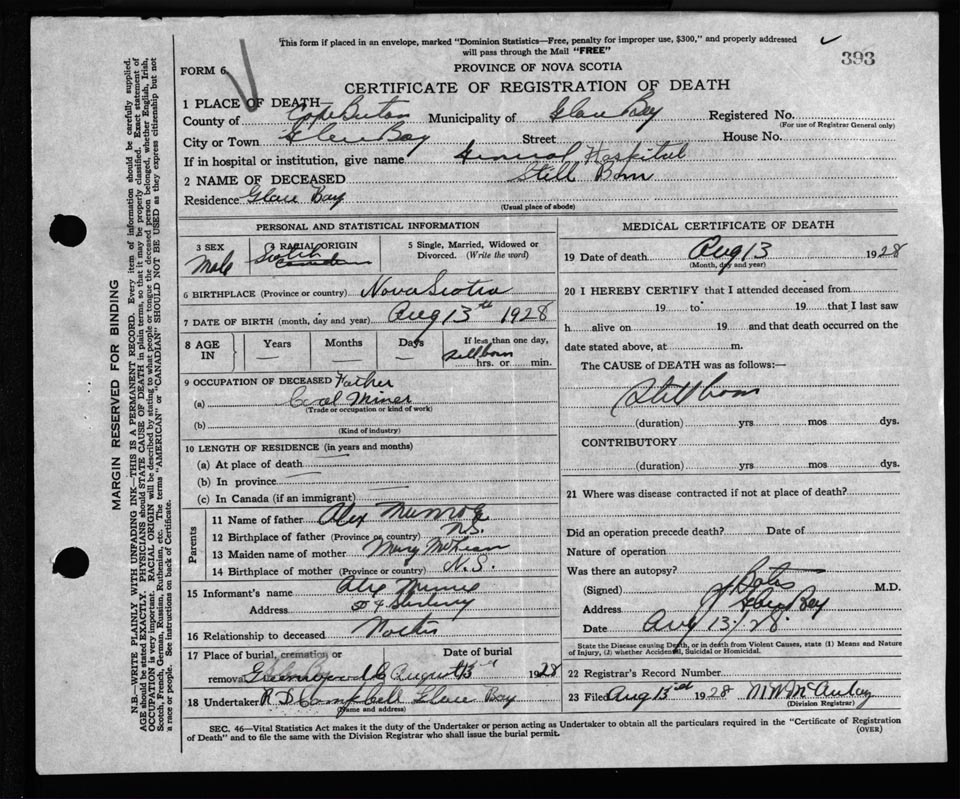 This form if placed in an envelope, marked "Dominion Statistics—Free, penalty for improper use, $300," and properly addressed
will pass through the Mail "FREE"
393
FORM 6
PROVINCE OF NOVA SCOTIA
CERTIFICATE OF REGISTRATION OF DEATH
1 PLACE OF DEATH
County of Cape Breton Municipality of Glace Bay Registered No.
(For use of Registrar General only)
City or Town Glace Bay Street House No.
If in hospital or institution, give name General Hospital
2 NAME OF DECEASED Still Born
Residence Glace Bay
(Usual place of abode)
PERSONAL AND STATISTICAL INFORMATION
3 SEX Male
RACIAL ORIGIN Scotch Canadian
5 Single, Married, Widowed or Divorced. (Write the word)
6 BIRTHPLACE (Province or country) Nova Scotia
7 DATE OF BIRTH (month, day and year) Aug 13th 1928
8 AGE IN Years Months Days If less than one day, Stillborn hrs. or min.
9 OCCUPATION OF DECEASED Father
(a) Coal Miner
(Trade or occupation or kind of work)
(b)
(Kind of industry)
10 LENGTH OF RESIDENCE (in years and months)
(a) At place of death
(b) In province
(c) In Canada (if an immigrant)
Parents
11 Name of father Alex Munroe
12 Birthplace of father (Province or country) N.S.
13 Maiden name of mother Mary McLean
14 Birthplace of mother (Province or country) N.S.
15 Informant's name Alex
Address
16 Relationship to deceased
17 Place of burial, cremation or removal Greenwood C Date of burial August 13 1928
18 Undertaker Campbell Glace Bay
(Name and address)
MEDICAL CERTIFICATE OF DEATH
19 Date of death Aug 13 1928
(Month, day and year)
20 I HEREBY CERTIFY that I attended deceased from
19 to 19 that I last saw
h alive on 19 and that death occurred on the
date stated above, at m.
The CAUSE of DEATH was as follows:—
Stillborn
(duration) yrs mos dys.
CONTRIBUTORY
(duration) yrs mos dys.
21 Where was disease contracted if not at place of death?
Did an operation precede death? Date of
Nature of operation
Was there an autopsy?
(Signed) M.D.
Address Glace Bay
Date Aug 13/28
State the Disease causing Death, or in death from Violent Causes, state (1) Means and Nature
of Injury, (2) whether Accidental, Suicidal or Homicidal.
22 Registrar's Record Number
23 Filed Aug 13 1928
(Division Registrar)
SEC. 46—Vital Statistics Act makes it the duty of the Undertaker or person acting as Undertaker to obtain all the particulars required in the "Certificate of Registration
of Death" and to file the same with the Division Registrar who shall issue the burial permit.
(OVER)
MARGIN RESERVED FOR BINDING
N.B.—WRITE PLAINLY WITH UNFADING INK—THIS IS A PERMANENT RECORD. Every item of information should be carefully supplied.
AGE should be stated EXACTLY. PHYSICIANS should STATE CAUSE OF DEATH in plain terms, so that it may be properly classified. Exact statement of
OCCUPATION is very important. RACIAL ORIGIN will be described by stating to what people or tongue the deceased person belonged, whether English, Irish,
Scotch, French, German, Russian, Ruthenian, etc. The terms "AMERICAN" or "CANADIAN" SHOULD NOT BE USED as they express citizenship but not
a race or people. See instructions on back of Certificate.